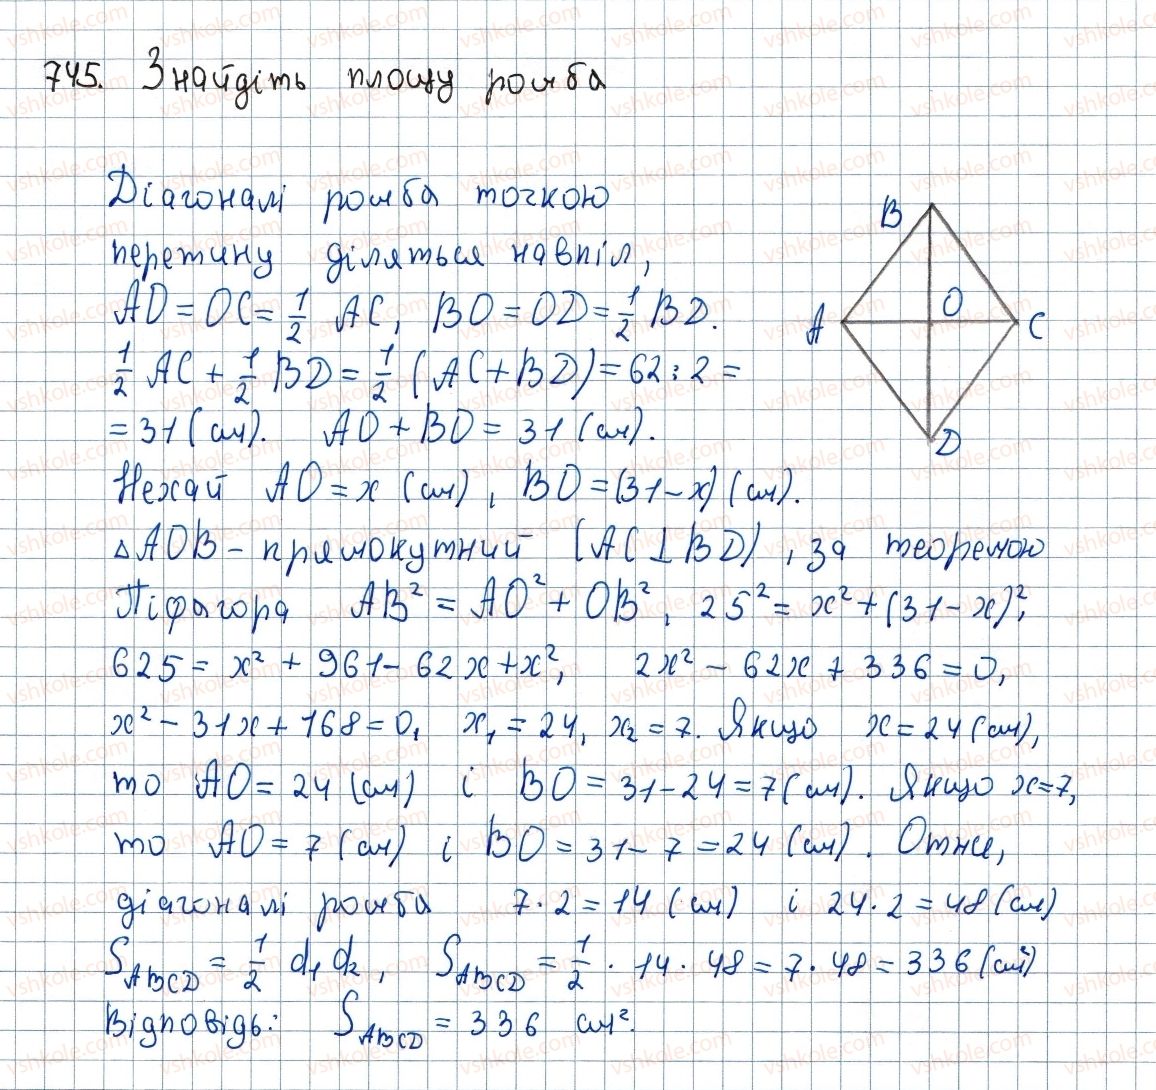 745. Знайдіть площу ромба
Діагоналі ромба точкою
перетину діляться навпіл,
AO = OC = 1/2 AC, BO = OD = 1/2 BD.
1/2 AC + 1/2 BD = 1/2 (AC + BD) = 62 : 2 =
= 31 (см). AO + BO = 31 (см).
Нехай AO = x (см), BO = (31 - x) (см).
△AOB - прямокутний (AC ⊥ BD), за теоремою
Піфагора AB² = AO² + OB², 25² = x² + (31 - x)²;
625 = x² + 961 - 62x + x², 2x² - 62x + 336 = 0,
x² - 31x + 168 = 0, x₁ = 24, x₂ = 7. Якщо x = 24 (см),
то AO = 24 (см) і BO = 31 - 24 = 7 (см). Якщо x = 7,
то AO = 7 (см) і BO = 31 - 7 = 24 (см). Отже,
діагоналі ромба 7 · 2 = 14 (см) і 24 · 2 = 48 (см)
S ABCD = 1/2 d₁ d₂, S ABCD = 1/2 · 14 · 48 = 7 · 48 = 336 (см²)
Відповідь: S ABCD = 336 см².
B
O
A
C
D
vshkole.com